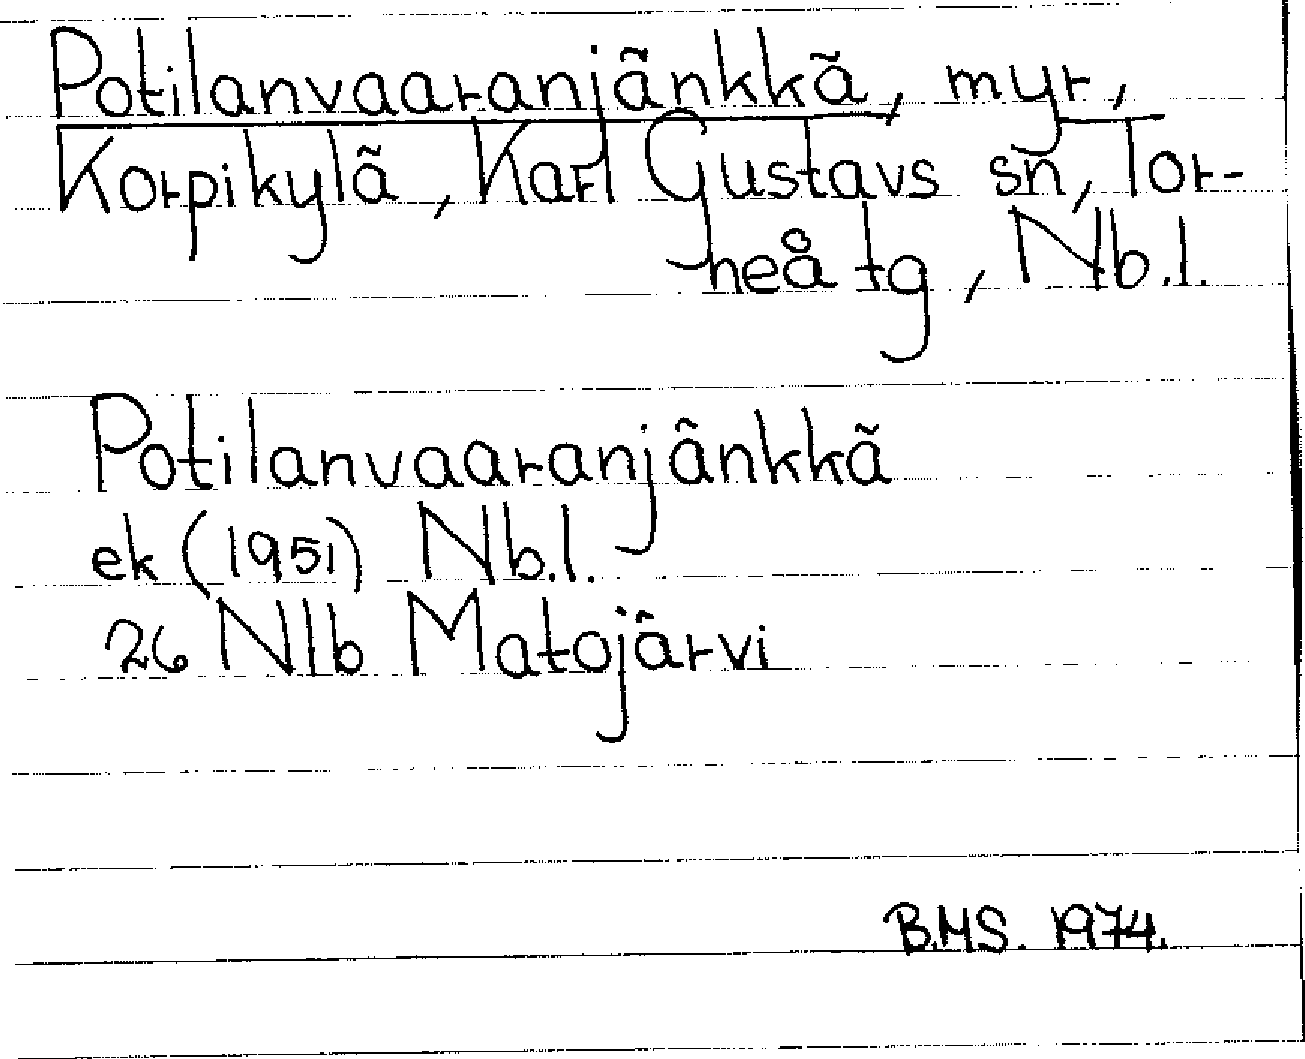 Potilanvaaranjänkkä, myr,
Korpikylä, Karl Gustavs sn, Tor-
neå tg, Nb.l.
Potilanvaaranjänkkä
ek (1951) Nb.l.
26 Nlb Matojärvi
B.M.S. 1974.